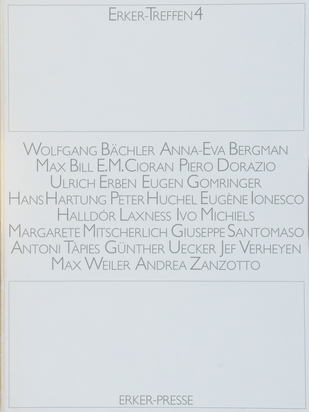 ERKER-TREFFEN 4
WOLFGANG BÄCHLER ANNA-EVA BERGMAN
MAX BILL E.M. CIORAN PIERO DORAZIO
ULRICH ERBEN EUGEN GOMRINGER
HANS HARTUNG PETER HUCHEL EUGÈNE IONESCO
HALLDÓR LAXNESS IVO MICHIELS
MARGARETE MITSCHERLICH GIUSEPPE SANTOMASO
ANTONI TÀPIES GÜNTHER UECKER JEF VERHEYEN
MAX WEILER ANDREA ZANZOTTO
ERKER-PRESSE